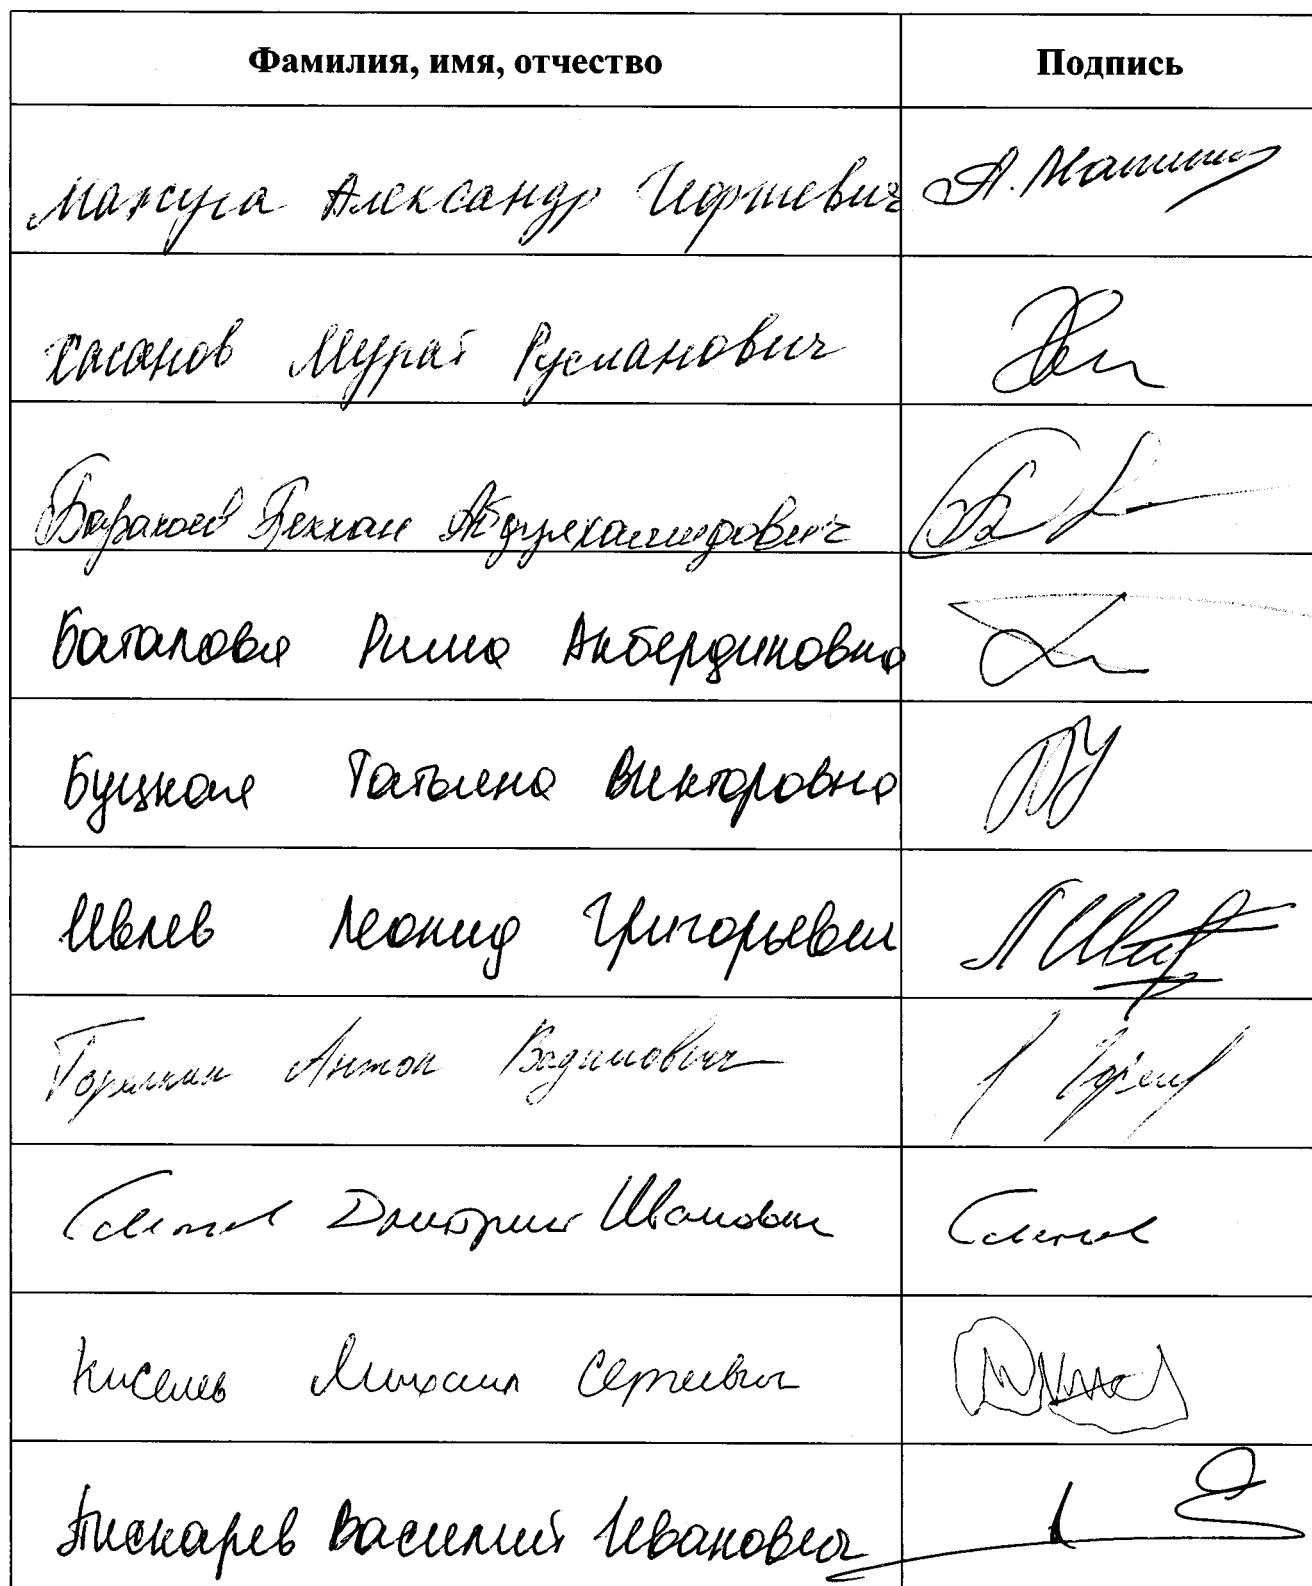 Фамилия, имя, отчество Подпись
Мажуга Александр Георгиевич А. Мажуга
Хасанов Мурат Русланович
Барахоев Бекхан Абдулхамидович
Баталова Римма Акбердиновна
Буцкая Татьяна Викторовна
Ивлев Леонид Григорьевич Л Ивлев
Горелкин Антон Вадимович
Дмитрий Иванович
Киселев Михаил Сергеевич
Пискарев Василий Иванович